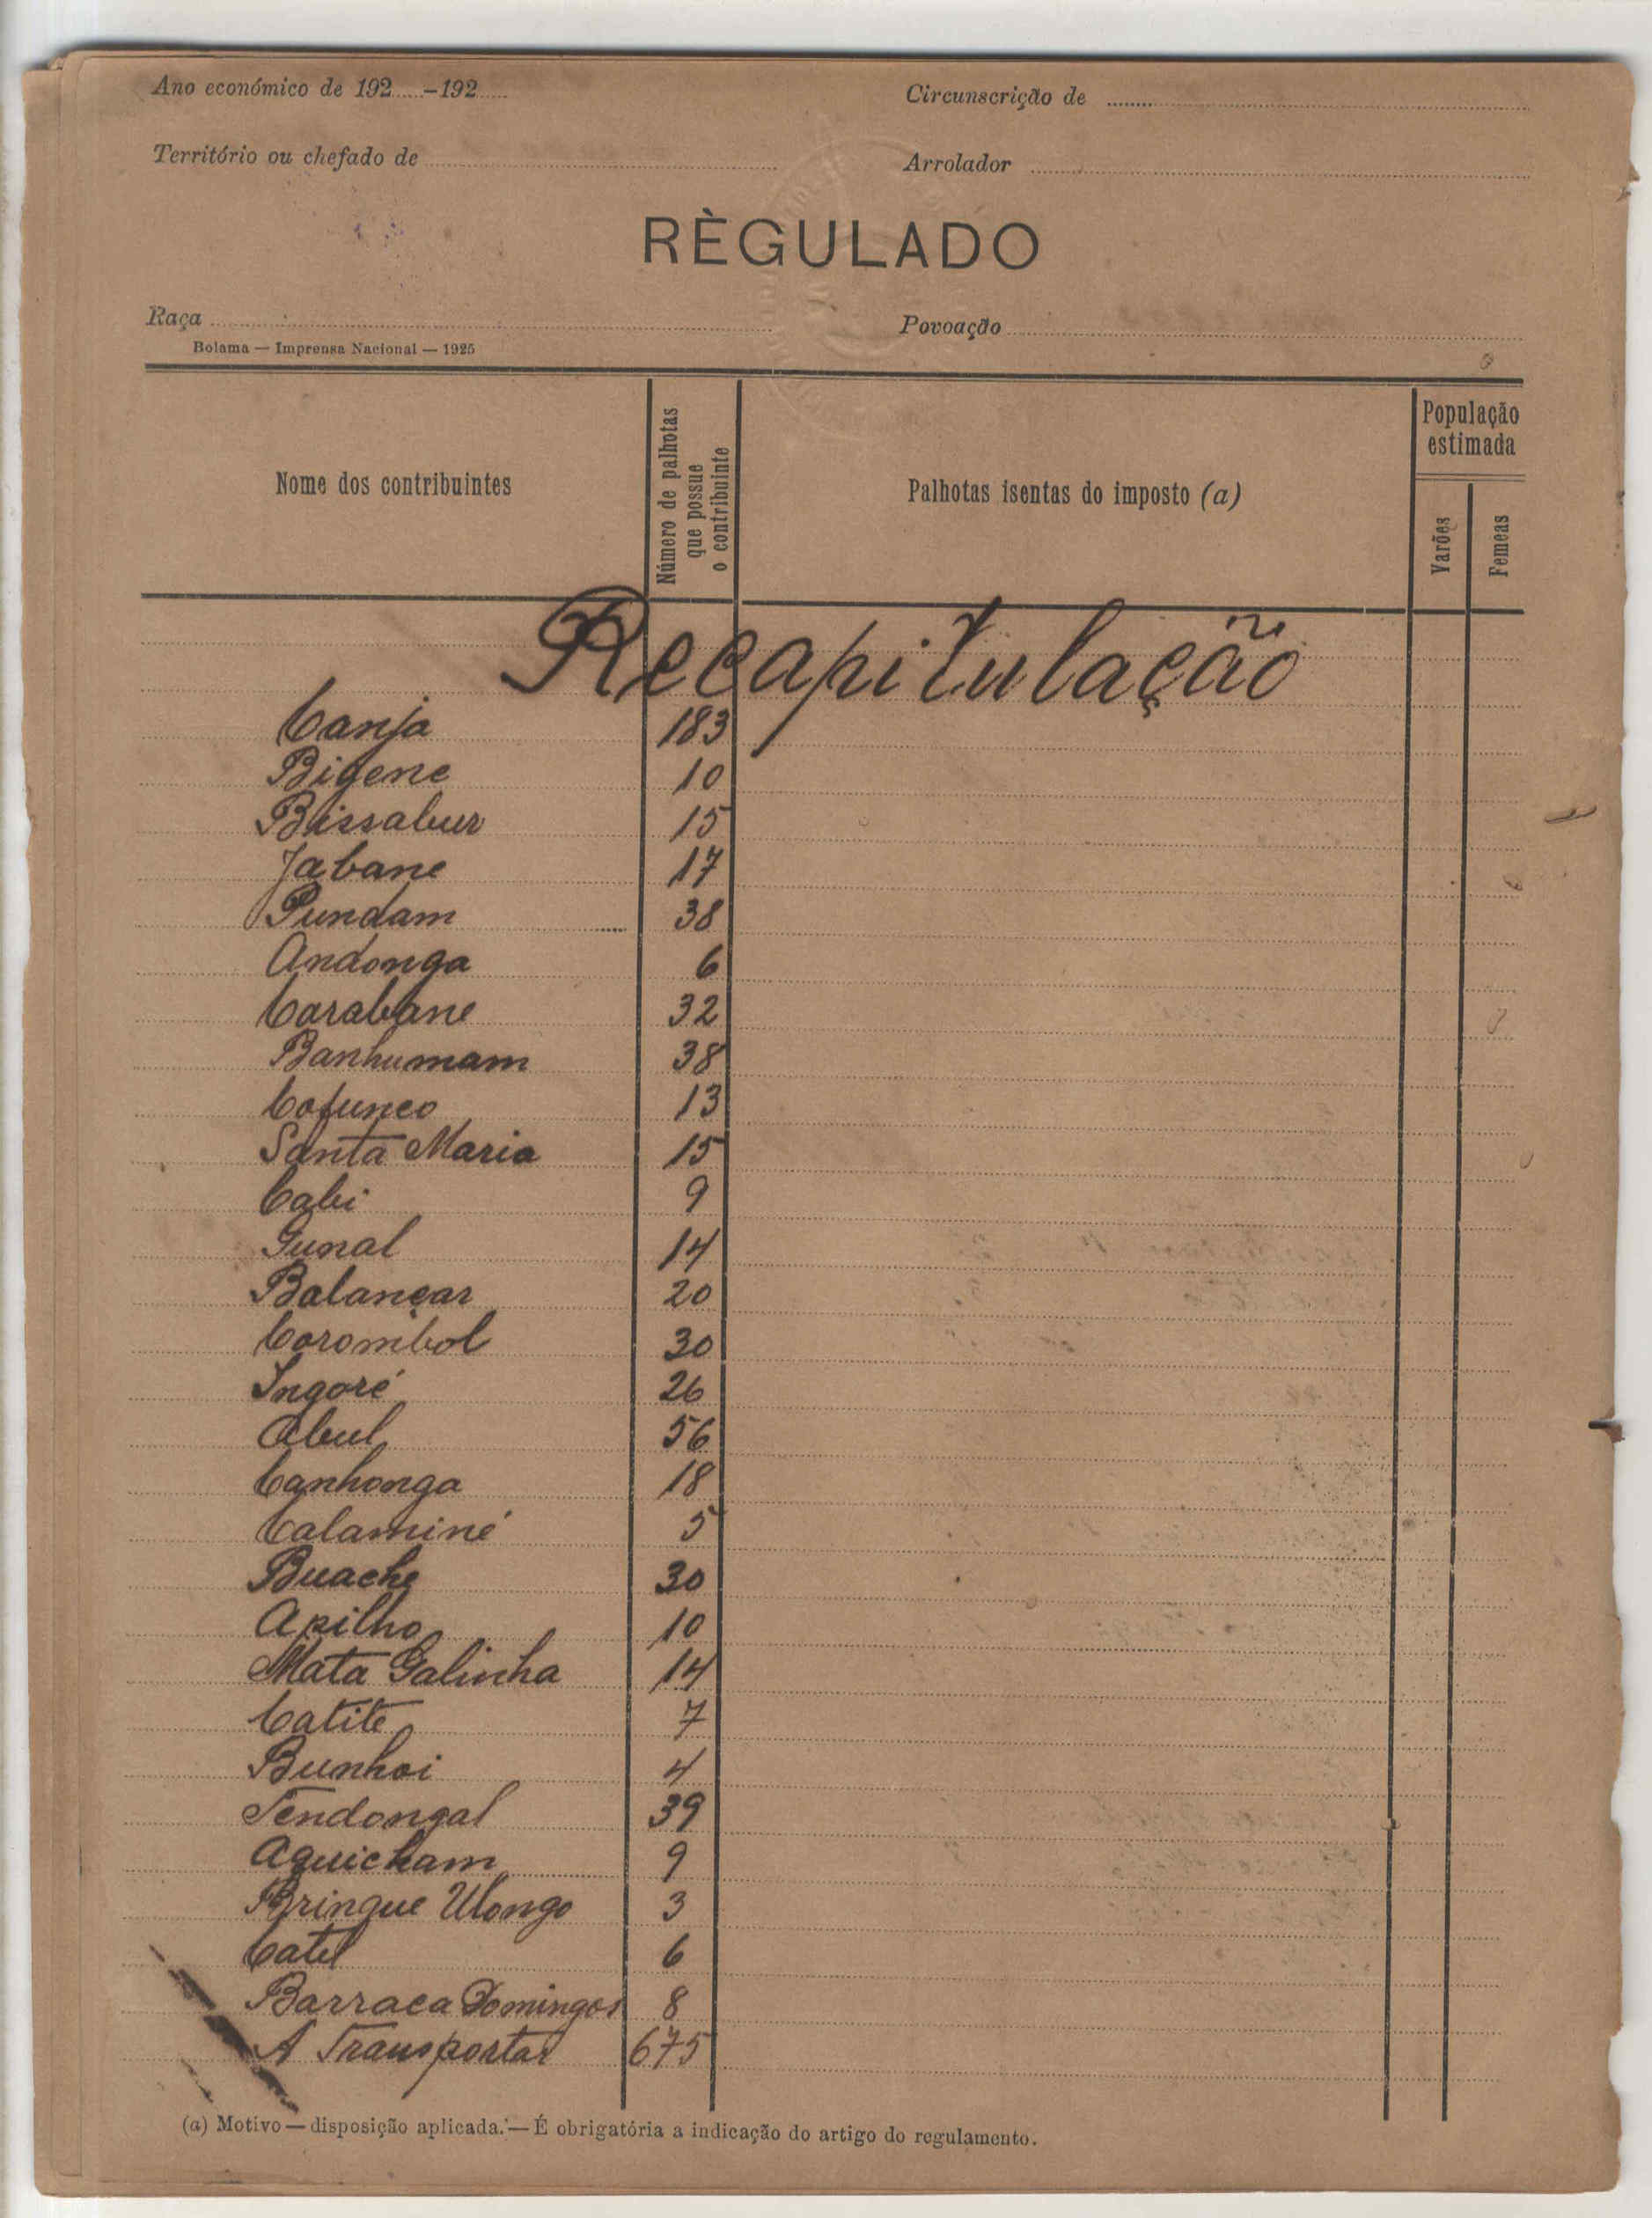 Ano económico de 192......–192......
Circunscrição de
Território ou chefado de
Arrolador
RÈGULADO
Raça
Povoação
Bolama — Imprensa Nacional — 1925
Nome dos contribuintes
Número de palhotas que possue o contribuinte
Palhotas isentas do imposto (a)
População estimada
Varões
Femeas
Recapitulação
Canja 183
Bigene 10
Bissabur 15
Jabane 17
Pundam 38
Andonga 6
Carabane 32
Banhumam 38
Cofunco 13
Santa Maria 15
Cabi 9
Gunal 14
Balançar 20
Corombol 30
Ingoré 26
Abul 56
Canhonga 18
Calaminé 5
Buache 30
Apilho 10
Mata Galinha 14
Catite 7
Bunhoi 4
Tendongal 39
Aguicham 9
Bringue Ulongo 3
Catel 6
Barraca Domingos 8
A Transportar 675
(a) Motivo — disposição aplicada. — É obrigatória a indicação do artigo do regulamento.